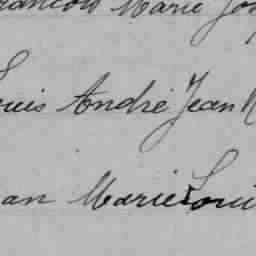 rancois Marie Jos
Louis André Jean
an Marie Loui